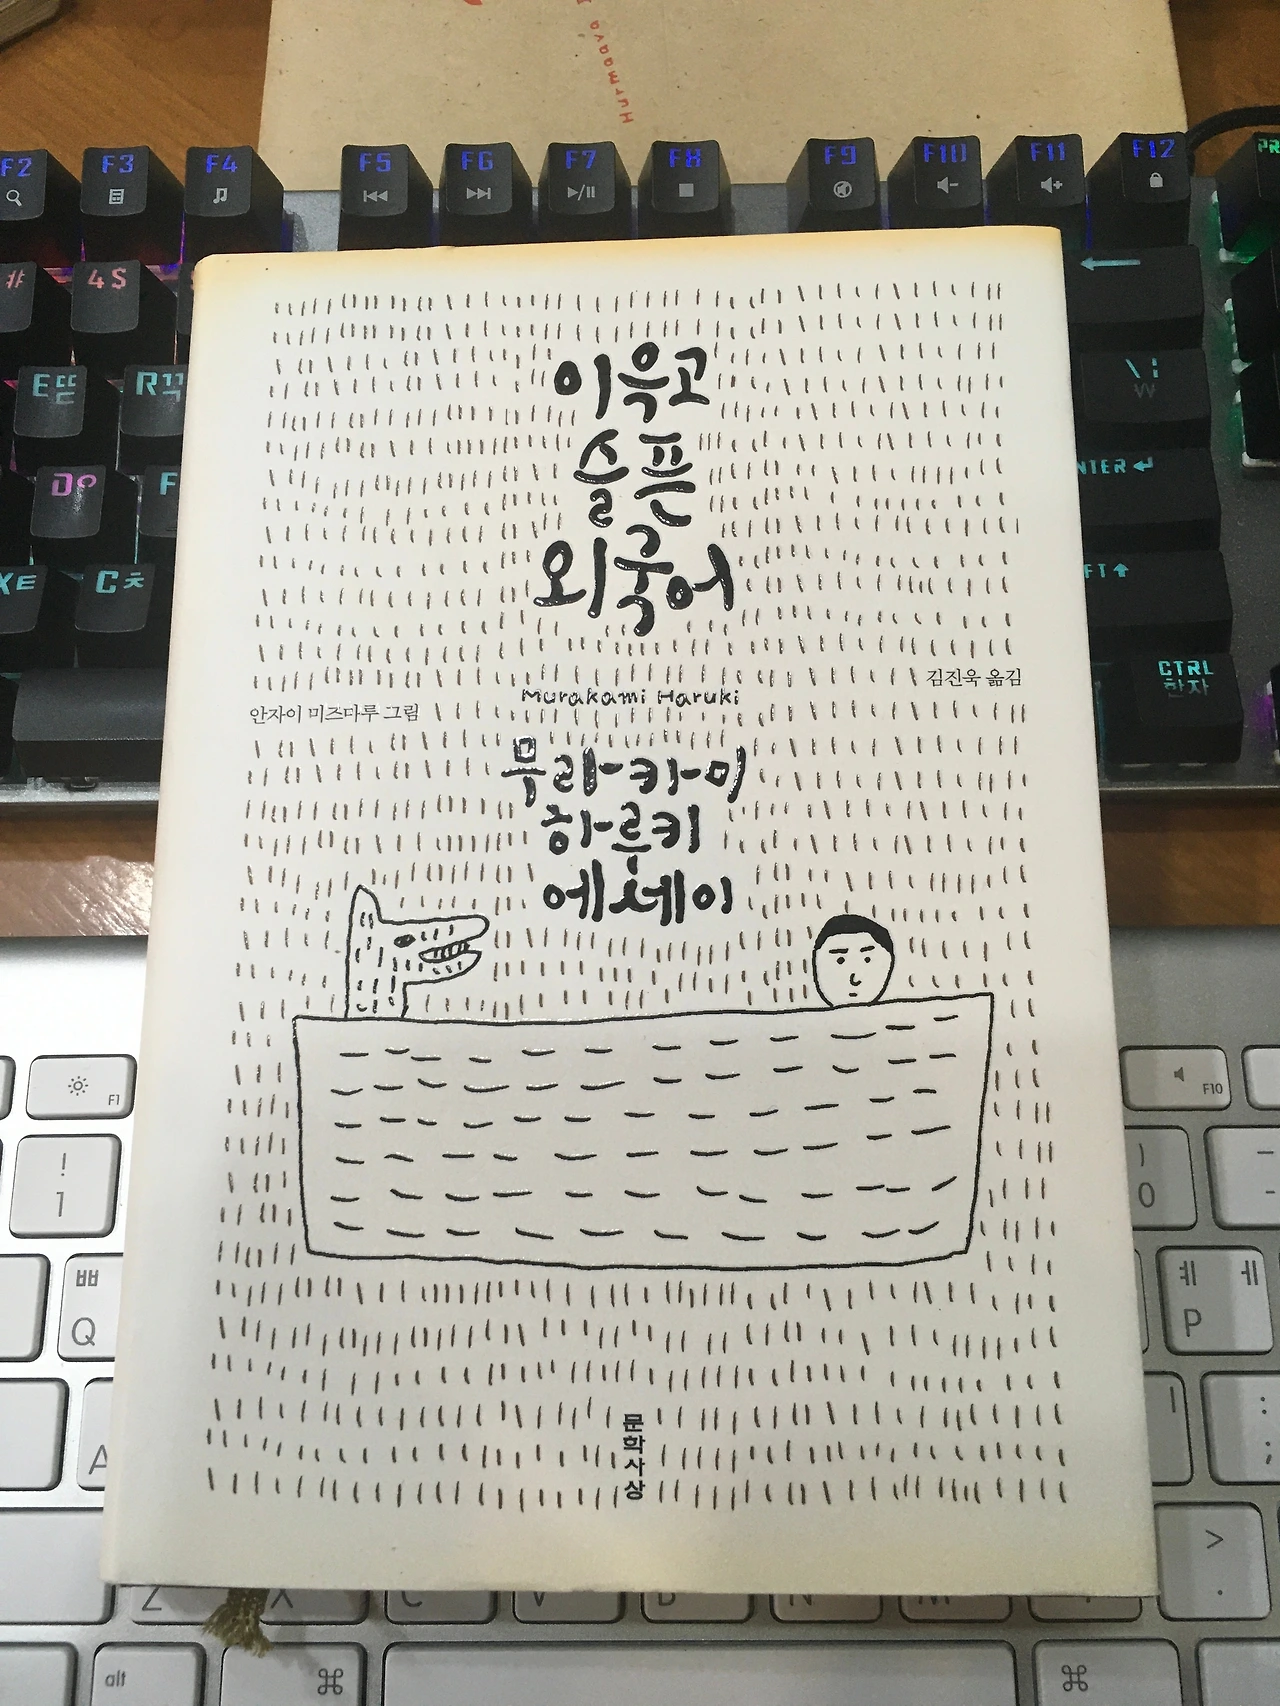 Hurmaaya
F2 F3 F4 F5 F6 F7 F8 F9 F10 F11 F12 PR
# 4 $
E ㄸㄷ R ㄲ \ |
W
D ㅇ F NTER
X ㅌ C ㅊ FT
CTRL
한자
이윽고
슬픈
외국어
김진욱 옮김
Murakami Haruki
안자이 미즈마루 그림
무라카미
하루키
에세이
문학사상
F1 F10
! ) _
1 0 -
ㅃㅂ ㅖ ㅔ
Q P
A : ;
> .
Z X C V B N M
alt ⌘ ⌘